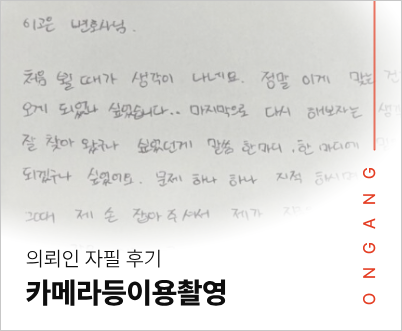 이고은 변호사님.
처음 뵐 때가 생각이 나네요. 정말 이게 맞는
오게 되었나 싶었습니다.. 마지막으로 다시 해보자는
잘 찾아 왔구나 싶었던게 말씀 한마디, 한마디에
되겠구나 싶었어요. 문제 하나 하나 지적
그때 제 손 잡아주셔서 제가
의뢰인 자필 후기
카메라등이용촬영
ONGANG